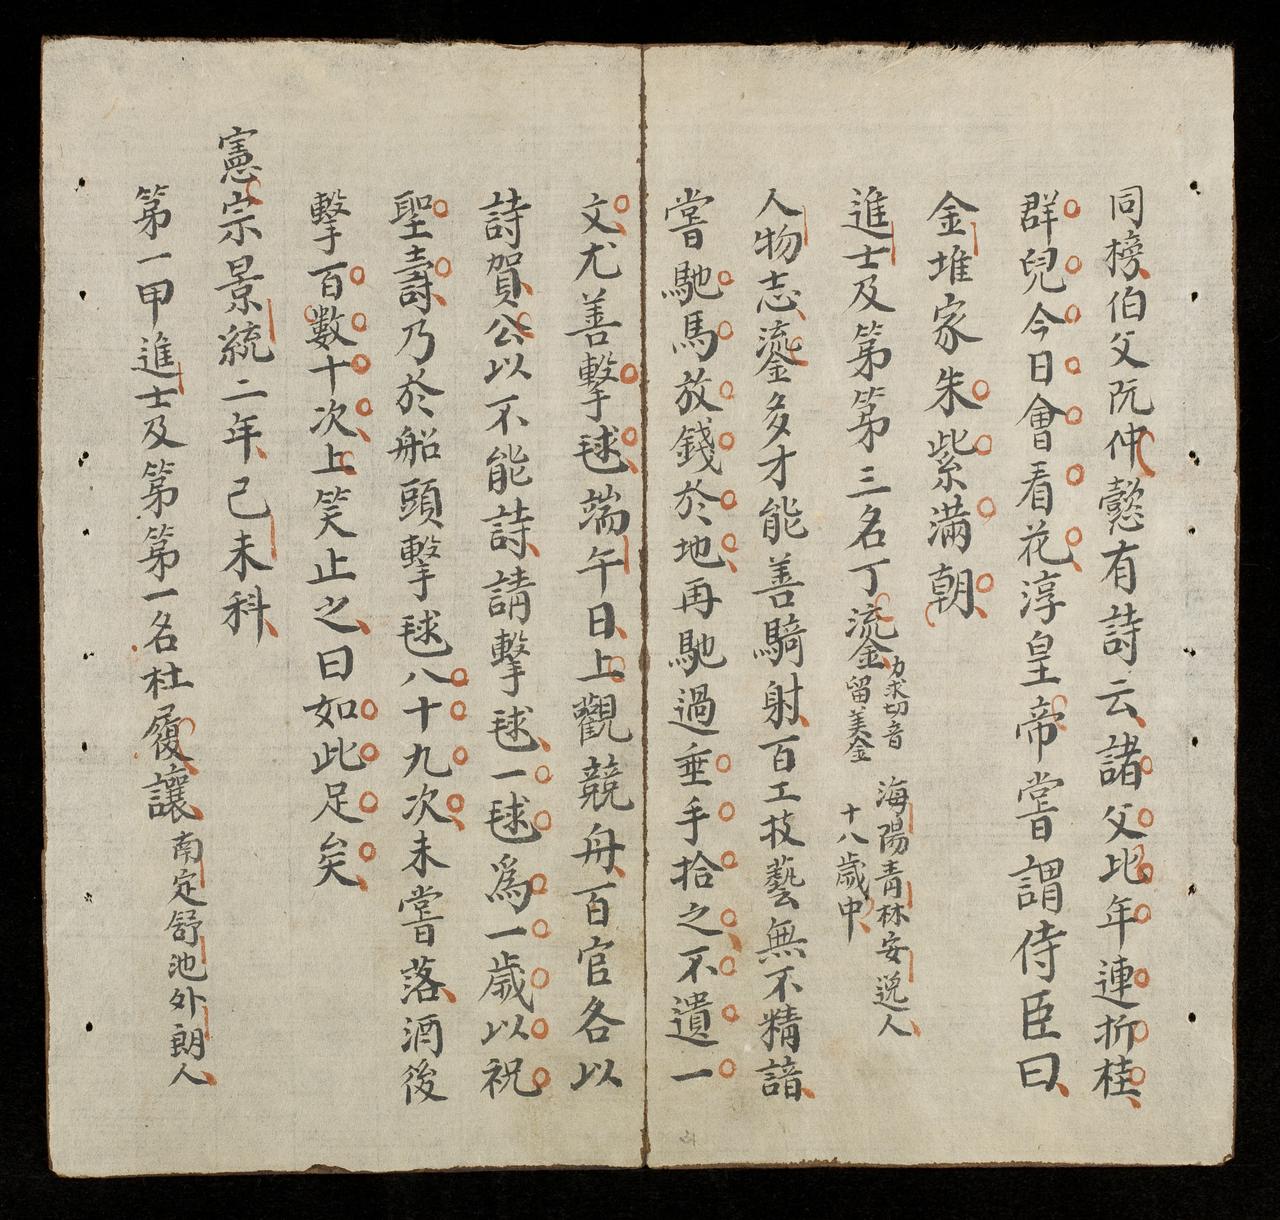 同榜伯父阮仲懿有詩云諸父比年連折桂
群兒今日會看花淳皇帝嘗謂侍臣曰
金堆家朱紫滿朝
進士及第第三名丁鎏
力求切音
留美金
海陽青林安逸人
十八歲中
人物志鎏多才能善騎射百工技藝無不精諳
嘗馳馬放錢於地再馳過垂手拾之不遺一
文尤善擊毬端午日上觀競舟百官各以
詩賀公以不能詩請擊毬一毬為一歲以祝
聖壽乃於船頭擊毬八十九次未嘗落酒後
擊百數十次上笑止之曰如此足矣
憲宗景統二年己未科
第一甲進士及第第一名杜履讓
南定舒池外朗人